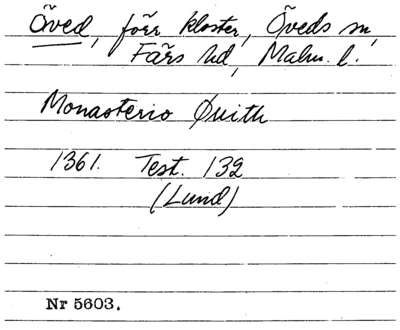 Öved, förr kloster, Öveds sn,
Färs hd, Malm. l.
Monasterio Øuith
1361. Test. 132
(Lund)
Nr 5603.